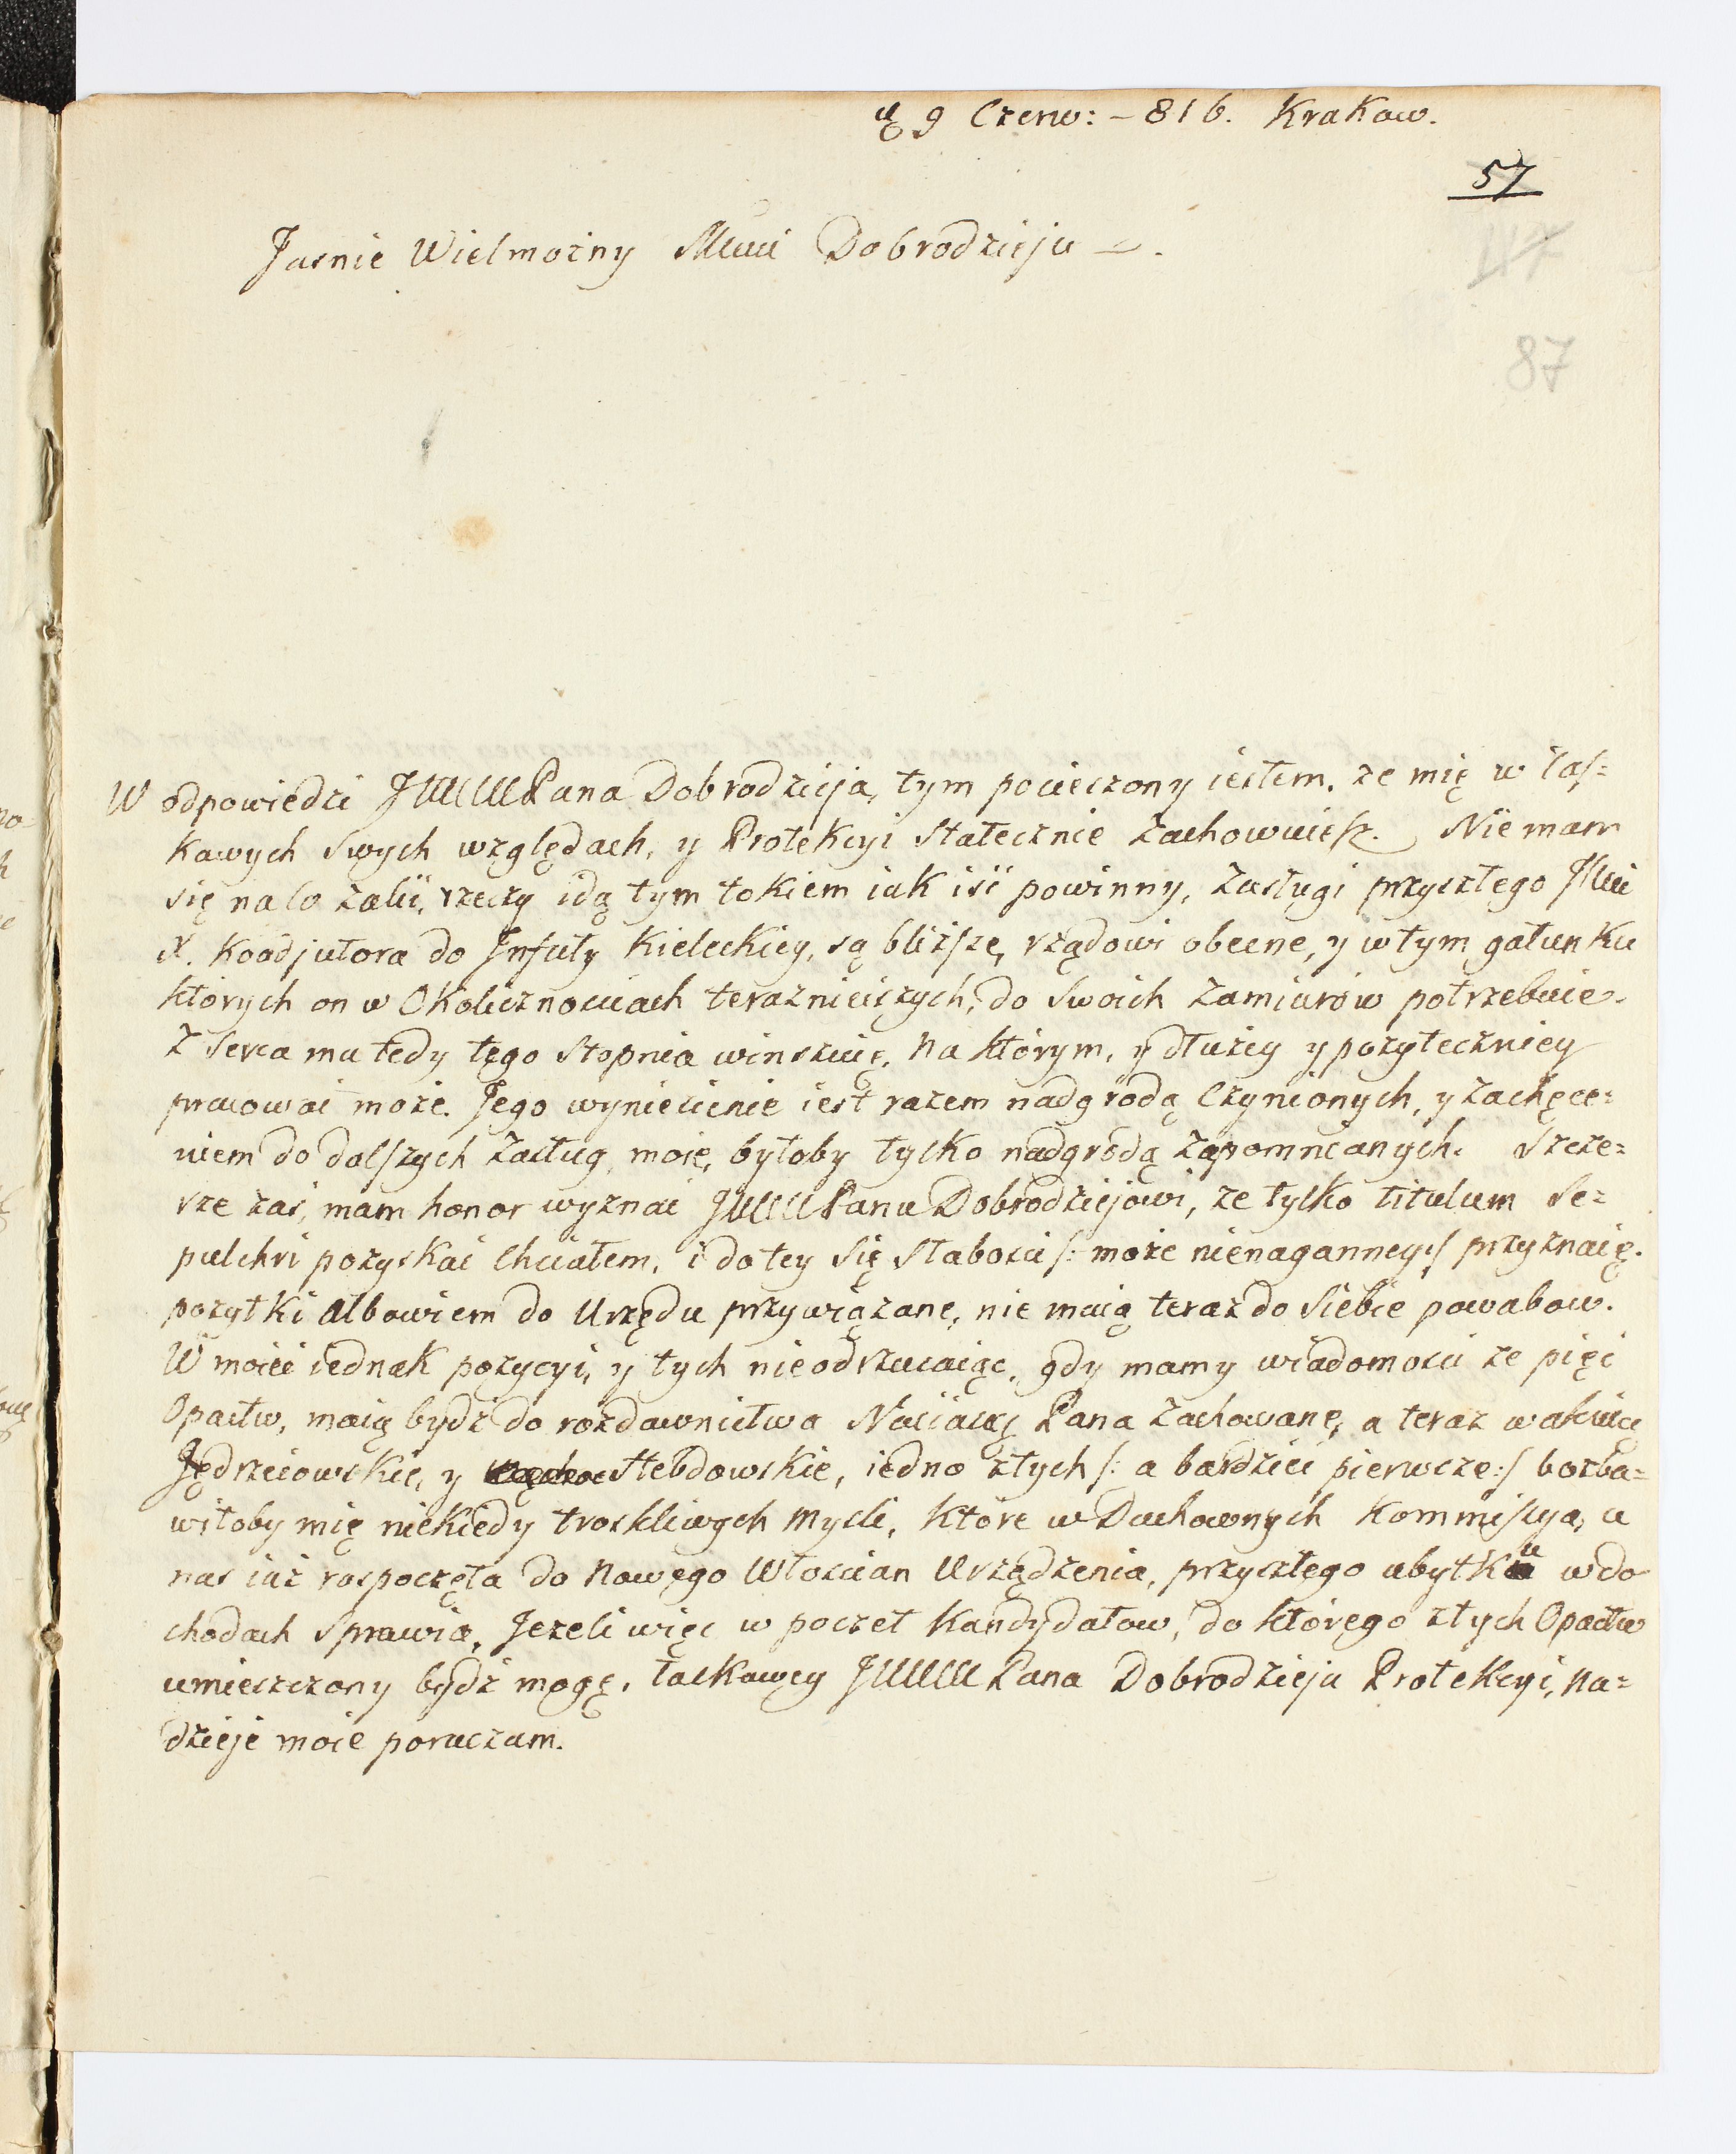 9 Czerw: – 816. Krakow.
57
117
87
Jasnie Wielmożny Mci Dobrodzieju –.
W odpowiedzi JWW Pana Dobrodzieja, tym pocieszony iestem, ze mię w łas=
kawych swych względach, y Protekcyi statecznie zachowuiesz. Nie mam
się na co zalić, rzeczy idą tym tokiem iak iść powinny, zasługi przyszłego JWci
X. Koadjutora do Infuły Kieleckiey, są bliższe, rządowi obecne, y w tym gatunku
których on w Okolicznosciach teraznieiszych, do swoich zamiarów potrzebuie.
Z serca mu tedy tego stopnia winszuię, na którym, y dłużey y pożyteczniey
pracować może. Jego wyniesienie iest razem nadgrodą czynionych, y zachęce=
niem do dalszych zasług, moie, byłoby tylko nadgrodą zapomnianych. Szcze=
rze zaś, mam honor wyznać JWW Panu Dobrodziejowi, ze tylko titulum se=
pulchri pozyskać chciałem, i do tey się słabosci /: może nienaganney :/ przyznaię.
pożytki albowiem do Urzędu przywiązane, nie maią teraz do siebie powabow.
W moiei iednak pozycyi, y tych nieodrzucaiąc, gdy mamy wiadomosci ze pięć
Opactw, maią bydź do rozdawnictwa Nayiasn: Pana zachowane, a teraz wakuie
Jędrzeiowskie, y Hebdowskie, iedno z tych /: a bardziei pierwsze :/ bozba=
wiłoby mię niekiedy troskliwych mysli, które w Duchownych Kommissya, u
nas iuż rospoczęta do nowego Włoscian Urządzenia, przyszłego ubytku w do
chodach sprawia. Jezeli więc w poczet Kandydatow, do którego z tych Opactw
umieszczony bydź mogę, łaskawey JWW Pana Dobrodzieja Protekcyi, na=
dzieje moie poruczam.